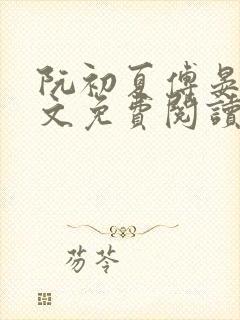 阮初夏傅晏
文免費閱讀
芴苓